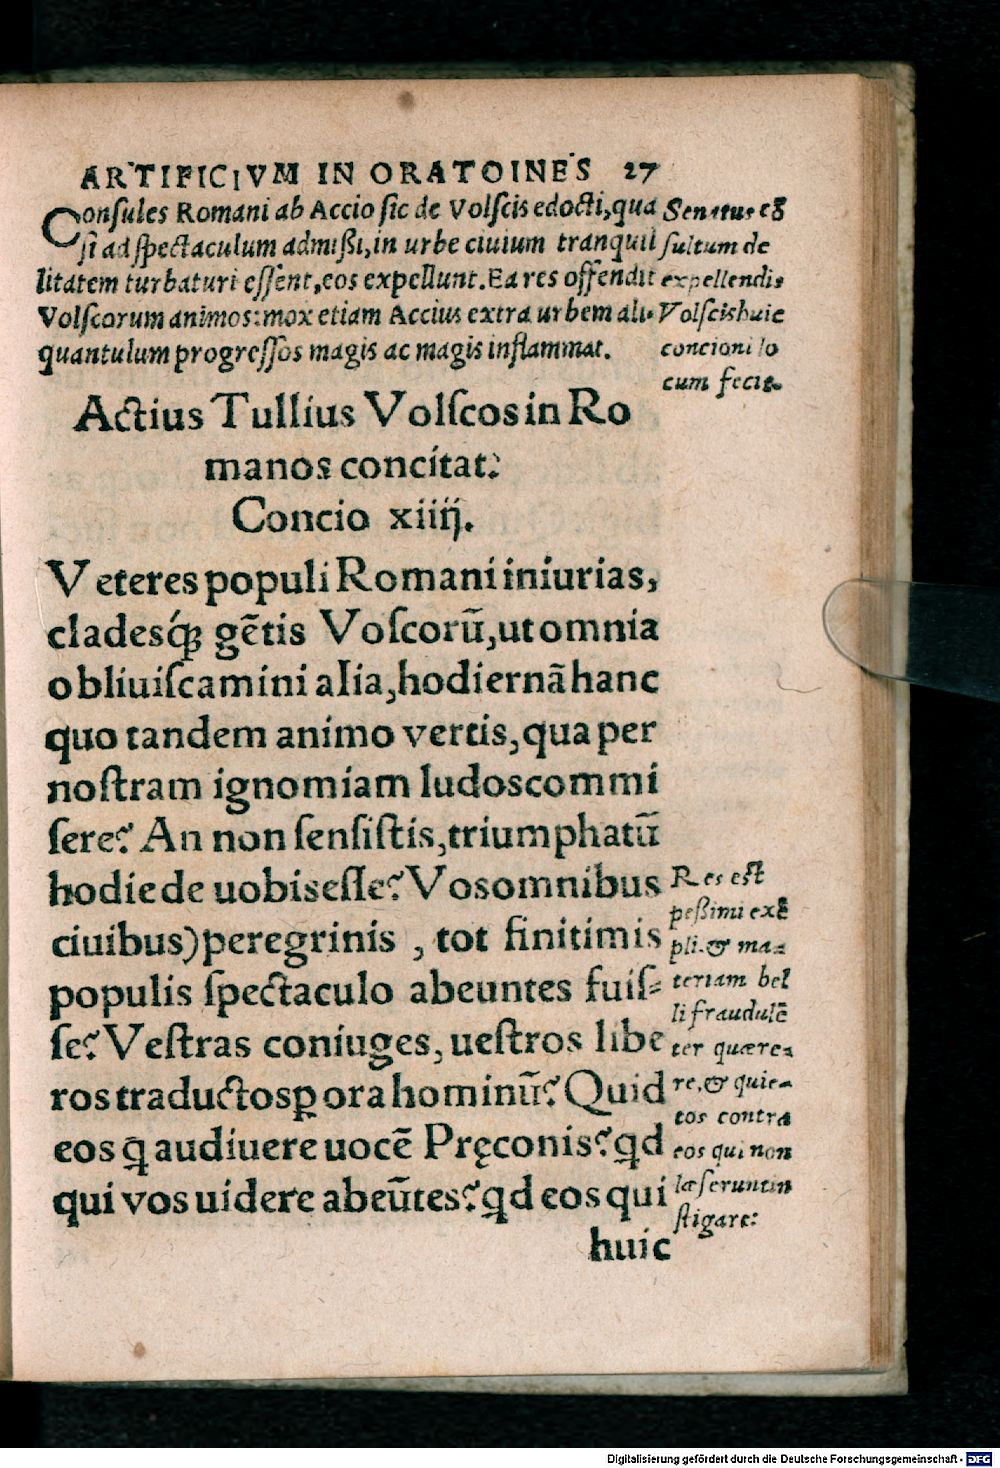 ARTIFICIVM IN ORATOINES 27
Consules Romani ab Accio sic de Volscis edocti, qua
si ad spectaculum admißi, in urbe ciuium tranquil
litatem turbaturi essent, eos expellunt. Ea res offendit
Volscorum animos: mox etiam Accius extra urbem ali-
quantulum progressos magis ac magis inflammat.
Senatus cõ
sultum de
expellendis
Volscis huic
concioni lo
cum fecit.
Actius Tullius Volscos in Ro
manos concitat:
Concio xiiij.
Veteres populi Romani iniurias,
cladesq́ꝫ gẽtis Voscorũ, ut omnia
obliuiscamini alia, hodiernã hanc
quo tandem animo vertis, qua per
nostram ignomiam ludos commi
sere? An non sensistis, triumphatũ
hodie de uobis esse? Vos omnibus
ciuibus) peregrinis , tot finitimis
populis spectaculo abeuntes fuis-
se? Vestras coniuges, uestros libe
ros traductos ꝑ ora hominũ? Quid
eos q̃ audiuere uocẽ Pręconis? qd
qui vos uidere abeũtes? qd eos qui
huic
Res est
peßimi exẽ
pli. & ma-
teriam bel
li fraudulẽ
ter quære-
re, & quie-
tos contra
eos qui non
læserunt in
stigare:
Digitalisierung gefördert durch die Deutsche Forschungsgemeinschaft - DFG